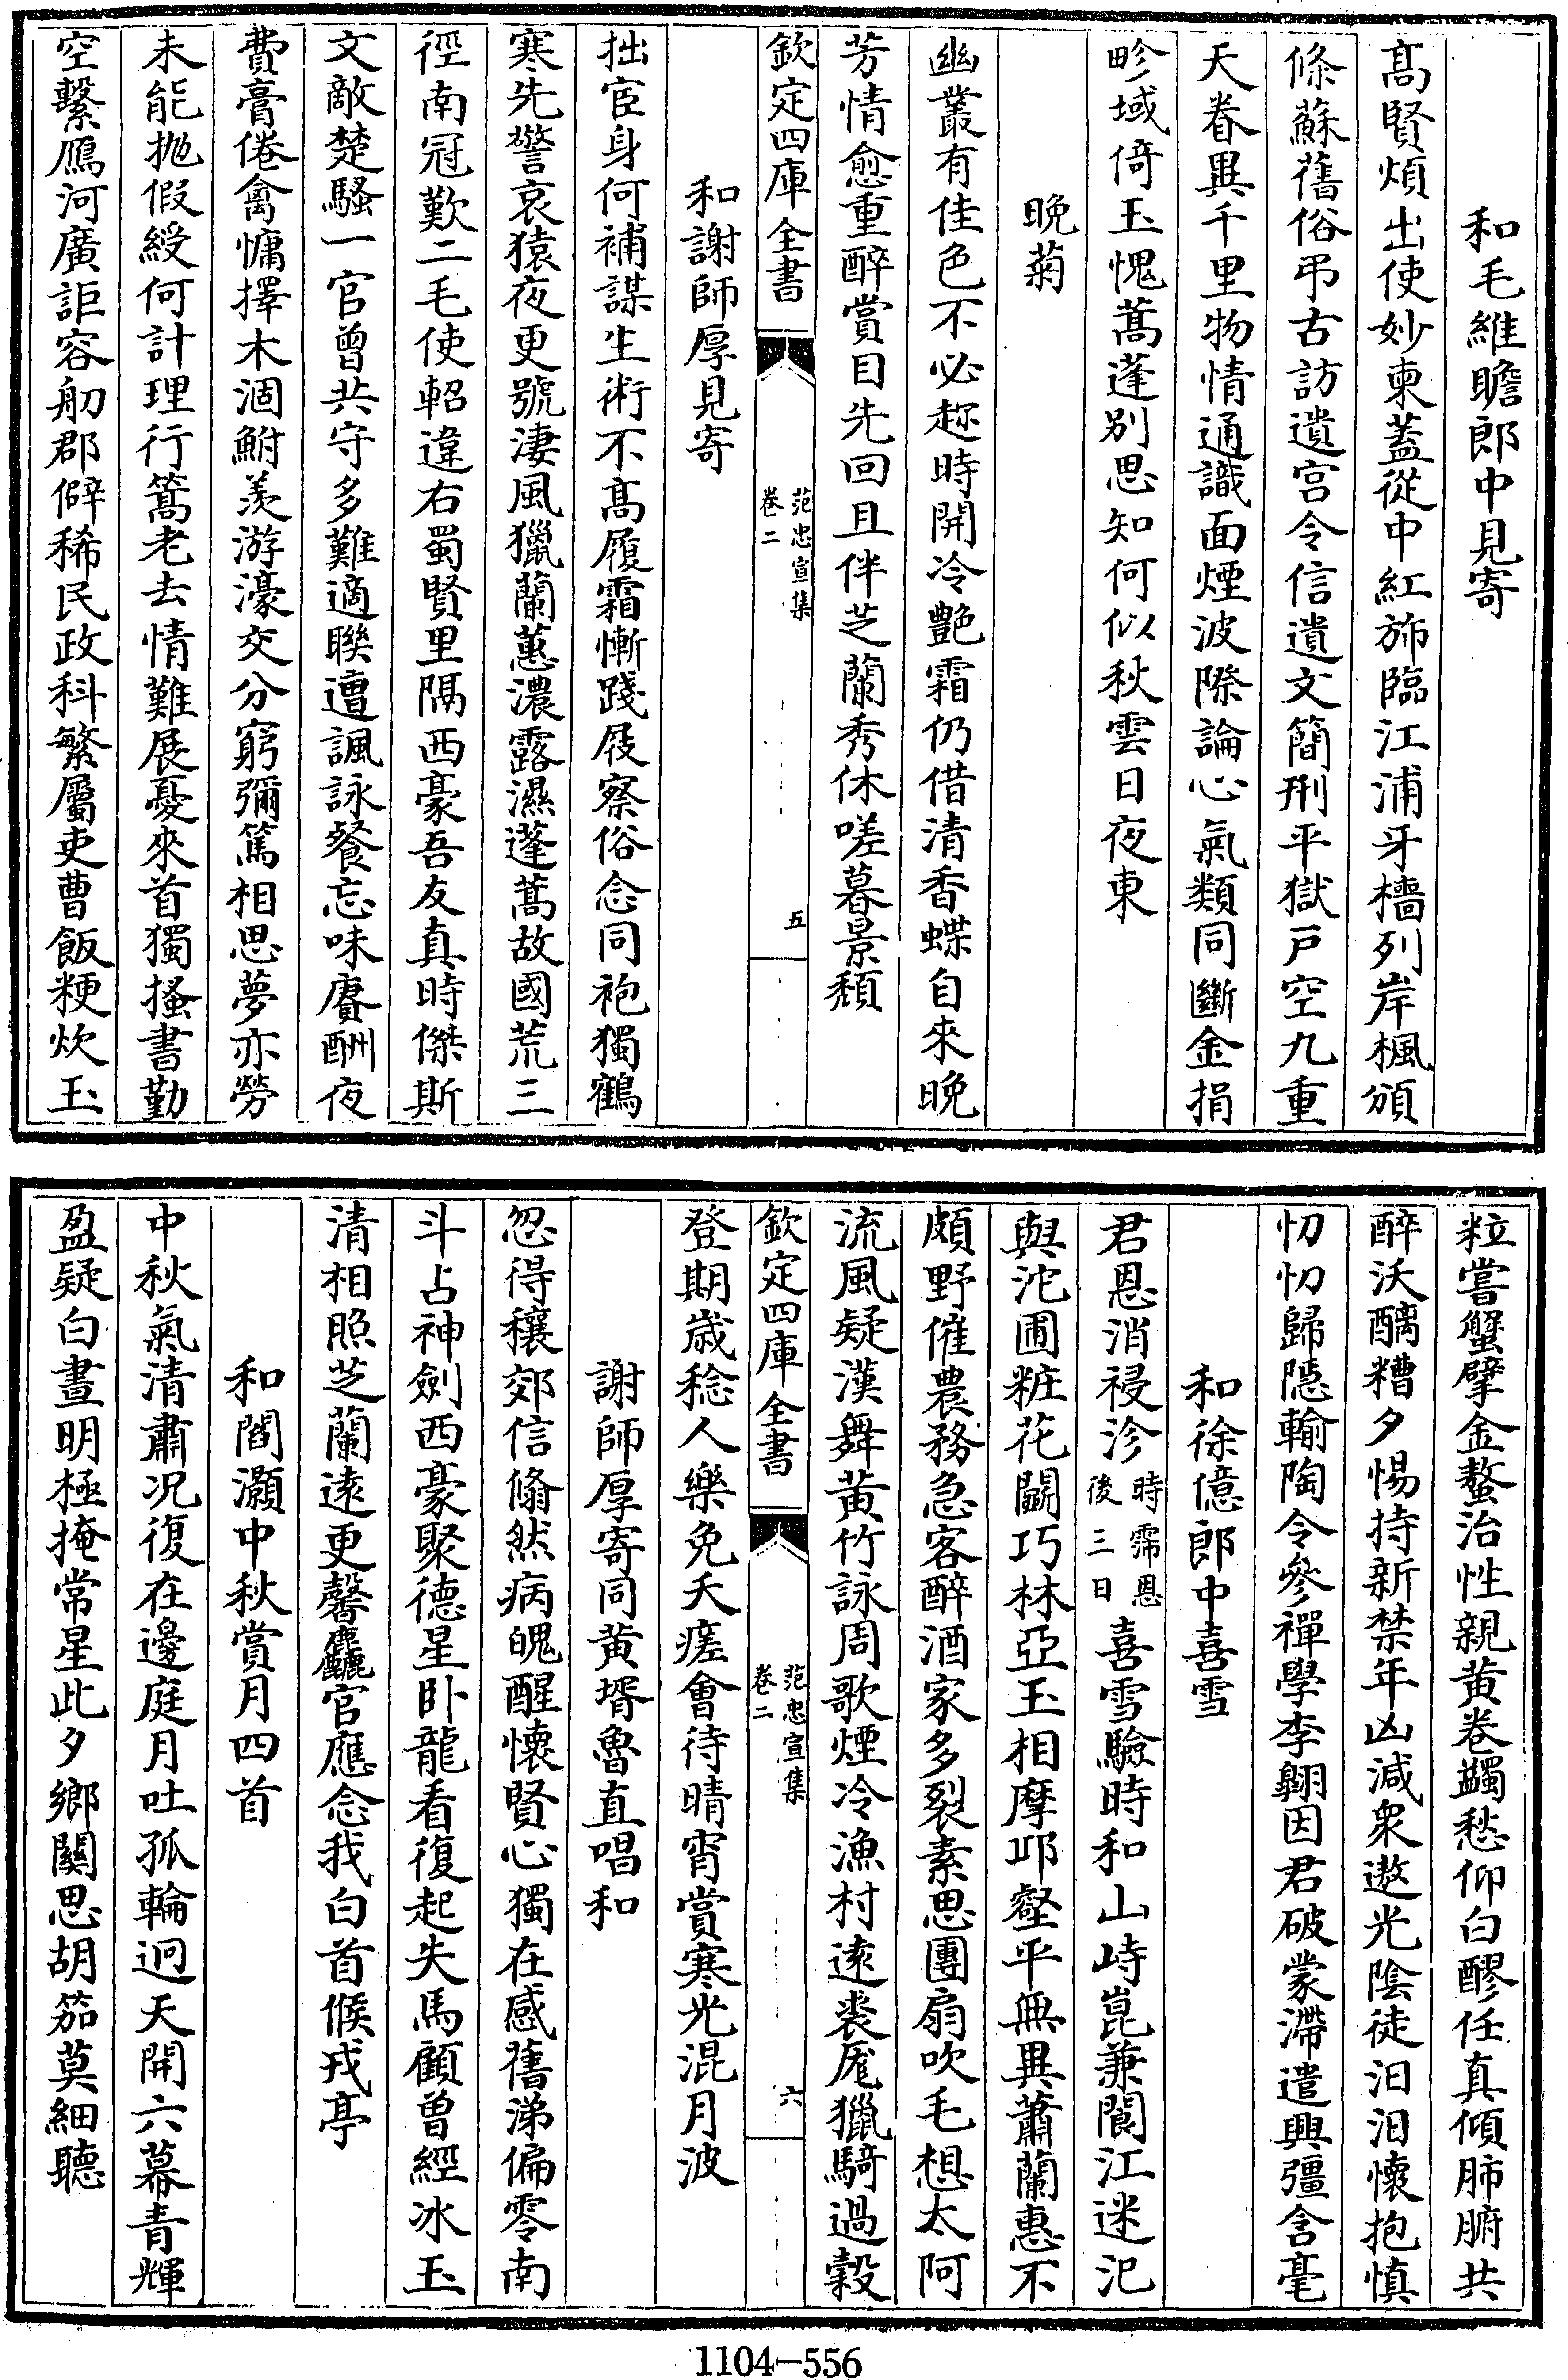 和毛維瞻郎中見寄
髙賢煩出使妙柬蓋從中紅斾臨江浦牙檣列岸楓頒
條蘇舊俗弔古訪遺宫令信遺文簡刑平獄戸空九重
天眷異千里物情通識面煙波際論心氣類同斷金捐
畛域倚玉愧蒿蓬别思知何似秋雲日夜東
晚菊
幽叢有佳色不必趂時開冷艷霜仍借清香蝶自來晚
芳情愈重醉賞目先回且伴芝蘭秀休嗟暮景頽
欽定四庫全書
范忠宣集
卷二
五
和謝師厚見寄
拙宦身何補謀生術不髙履霜慚踐屐察俗念同袍獨鶴
寒先警哀猿夜更號淒風獵蘭蕙濃露濕蓬蒿故國荒三
徑南冠歎二毛使軺違右蜀賢里隔西豪吾友真時傑斯
文敵楚騷一官曾共守多難適聯遭諷詠餐忘味賡酬夜
費膏倦禽慵擇木涸鮒羨游濠交分窮彌篤相思夢亦勞
未能抛假綬何計理行篙老去情難展憂來首獨搔書勤
空繫鴈河廣詎容舠郡僻稀民政科繁屬吏曹飯粳炊玉
粒嘗蟹擘金螯治性親黄卷蠲愁仰白醪任真傾肺腑共
醉沃醨糟夕惕持新禁年凶減衆遨光陰徒汩汩懷抱慎
忉忉歸隱輸陶令參禪學李翺因君破蒙滯遣興彊含毫
和徐億郎中喜雪
君恩消祲沴時霈恩後三日喜雪驗時和山峙崑兼閬江迷氾
與沱圃粧花鬭巧林亞玉相摩邛壑平無異蕭蘭惠不
頗野催農務急客醉酒家多裂素思團扇吹毛想太阿
流風疑漢舞黄竹詠周歌煙冷漁村逺裘厖獵騎過穀
欽定四庫全書
范忠宣集
卷二
六
登期歳稔人樂免夭瘥會待晴宵賞寒光混月波
謝師厚寄同黄壻魯直唱和
忽得穰郊信翛然病魄醒懷賢心獨在感舊涕偏零南
斗占神劍西豪聚德星卧龍看復起失馬顧曾經冰玉
清相照芝蘭逺更馨麤官應念我白首候戎亭
和閻灝中秋賞月四首
中秋氣清肅况復在邊庭月吐孤輪迥天開六幕青輝
盈疑白晝明極掩常星此夕鄉闗思胡笳莫細聽
1104-556